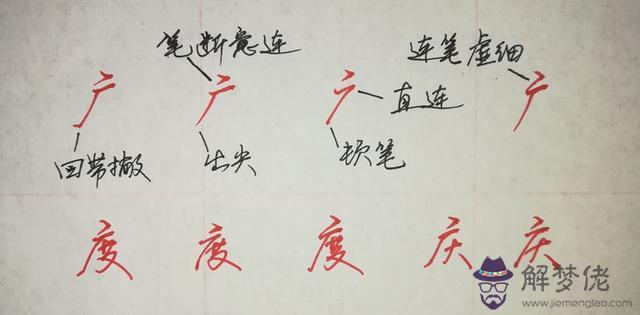 笔断意连 连笔虚细
广 广 广 广
直连
回带撇 出尖 顿笔
度 度 度 庆 庆
解梦佬
www.jiemenglao.com/